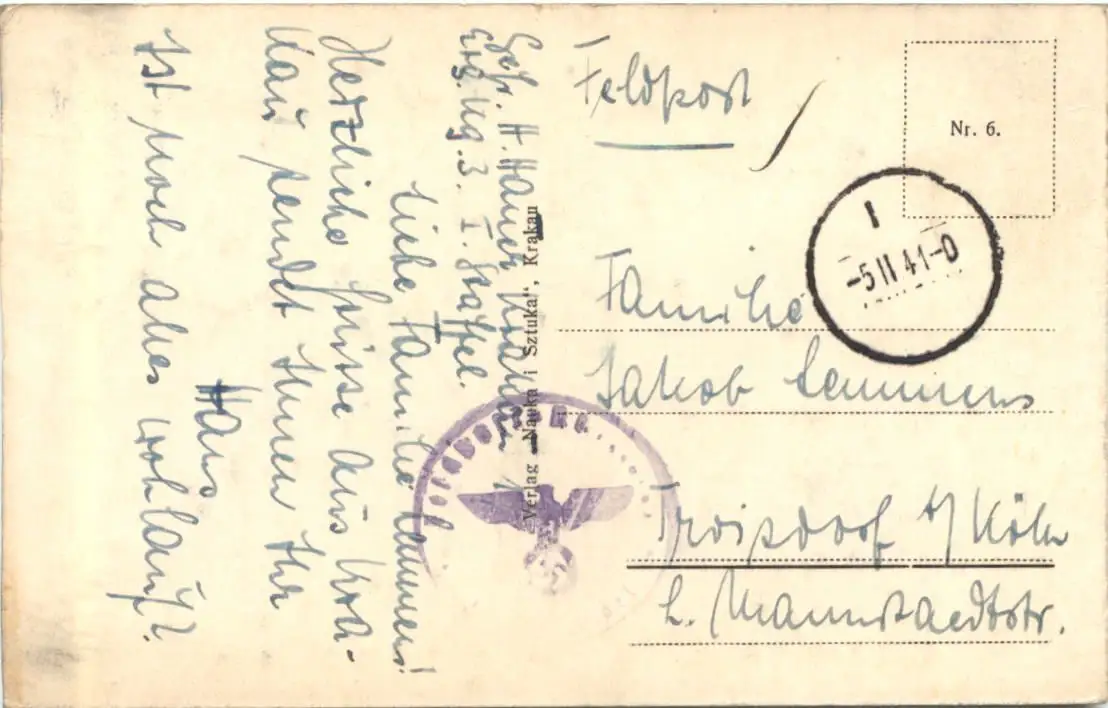 Gefr. H. Hauer Krakau 1
Erg. Kg. 3. I. Staffel.
Liebe Familie Lammers!
Herzliche Grüsse aus Kra-
kau sendet Ihnen Ihr
Hans
Ist noch alles wohlauf?
Verlag „Nauka i Sztuka", Krakau
Feldpost
Nr. 6.
-5 II 41-0
Familie
Jakob Lammers
Troisdorf b/Köln
L. Mannstaedtstr.